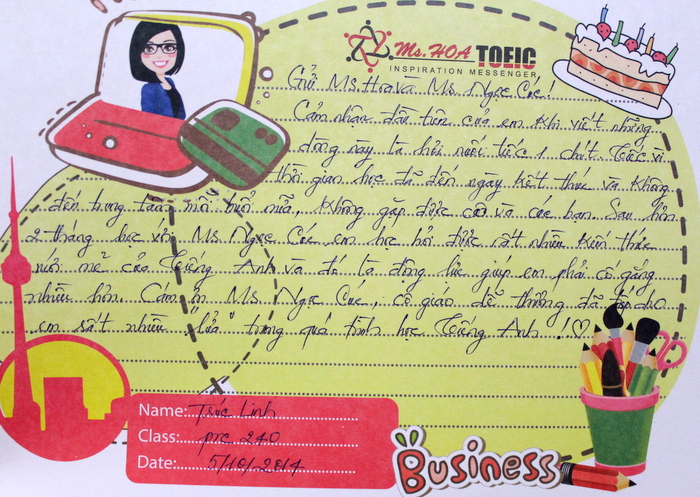 Ms. HOA TOEIC
INSPIRATION MESSENGER
Gửi Ms. Hoa và Ms. Ngọc Cúc!
Cảm nhận đầu tiên của em khi viết những
dòng này là hơi nuối tiếc 1 chút. Tiếc vì
thời gian học đã đến ngày kết thúc và không
đến trung tâm mỗi buổi nữa, không gặp được cô và các bạn. Sau hơn
2 tháng học với Ms. Ngọc Cúc em học hỏi được rất nhiều kiến thức
mới mẻ của Tiếng Anh và đó là động lực giúp em phải cố gắng
nhiều hơn. Cảm ơn Ms. Ngọc Cúc, cô giáo dễ thương đã tiếp cho
em rất nhiều "lửa" trong quá trình học Tiếng Anh!
Name: Trúc Linh
Class: pre 240
Date: 5/10/2014
Business